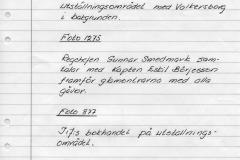 utställningsområdet med Volkersborg
i bakgrunden.
Foto 1275
Regchefen Gunnar Smedmark sam-
talar med Kapten Eskil Börjesson
framför glasmontrarna med alla
gåvor.
Foto 877
I17:s bokhandel på utställnings-
området.